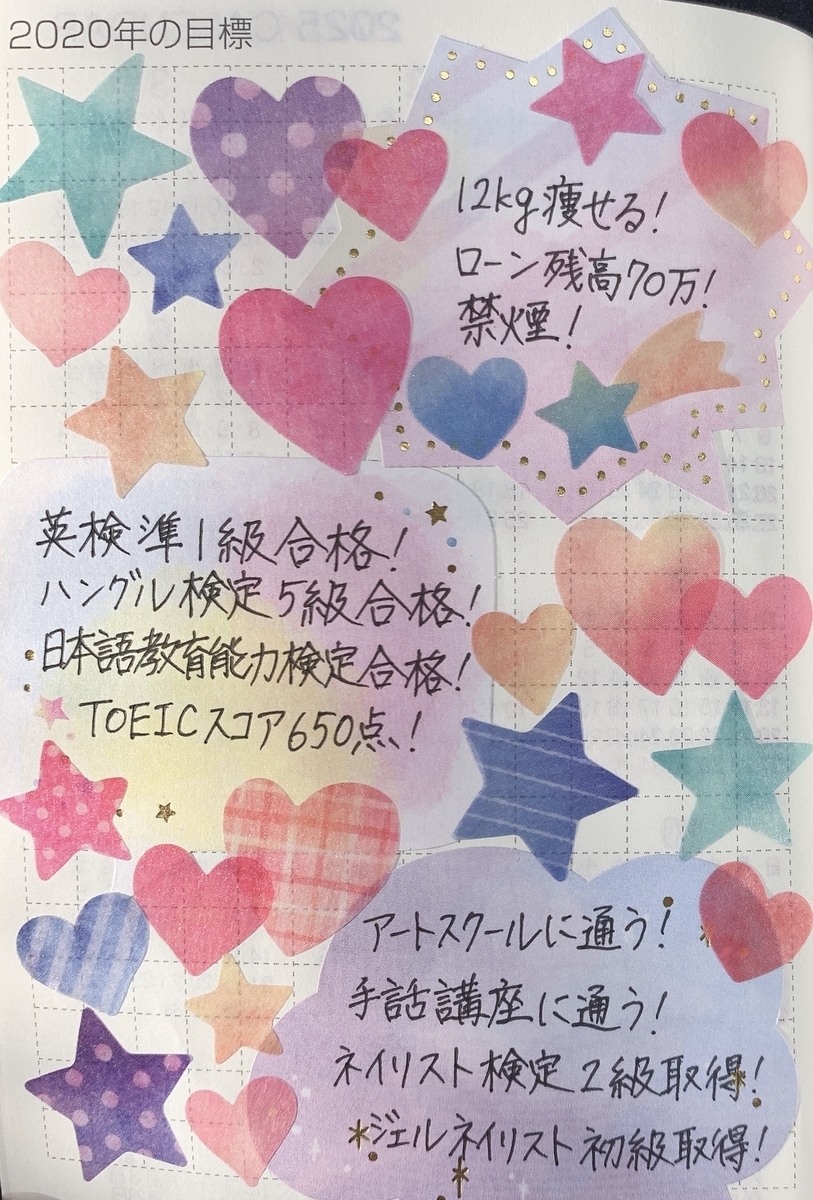 2020年の目標
12kg痩せる!
ローン残高70万!
禁煙!
英検準1級合格!
ハングル検定5級合格!
日本語教育能力検定合格!
TOEICスコア650点!
アートスクールに通う!
手話講座に通う!
ネイリスト検定2級取得!
*ジェルネイリスト初級取得!